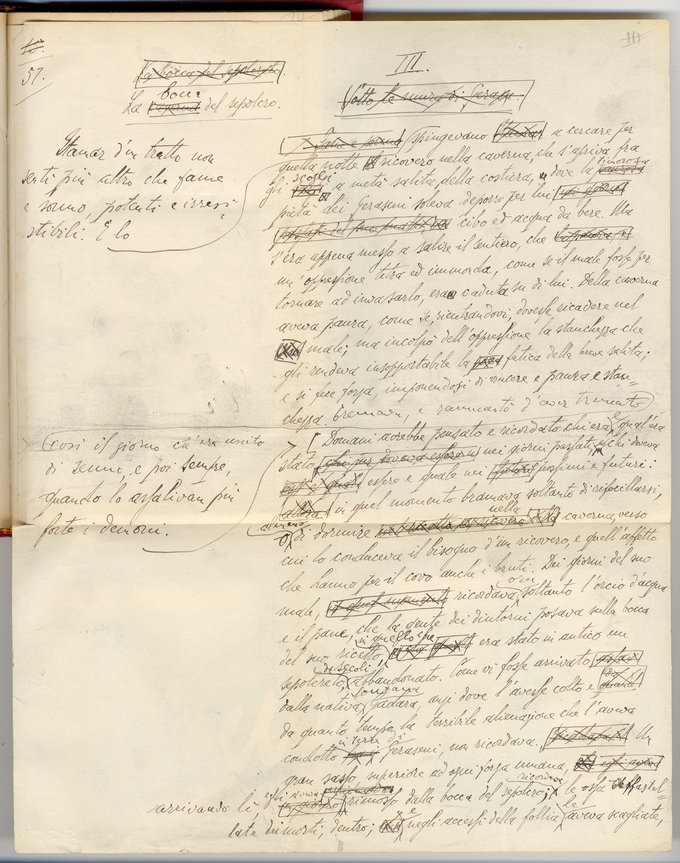 III.
57.
La bocca del sepolcro.
III.
Sotto le mura di Gerasa.
La bocca del sepolcro.
Stamar d'un tratto non
sentì più altro che fame
e sonno, potenti e irresi
stibili. E lo
spingevano a cercare per
quella notte ricovero nella caverna, che s'apriva fra
gli scogli a metà salita della costiera, dove la timorosa
pietà dei Geraseni soleva deporre per lui
cibo ed acqua da bere. Ma
s'era appena messo a salire il sentiero, che
un'oppressione tetra ed immonda, come se il male fosse per
tornare ad invasarlo, era caduta su di lui. Della caverna
aveva paura, come se, rientrandovi, dovesse ricadere nel
male; ma incolpò dell'oppressione la stanchezza che
gli rendeva insopportabile la fatica della breve salita;
e si fece forza, imponendosi di vincere e paura e stan-
chezza. Tremava, e rammentò d'aver tremato
così il giorno ch'era uscito
di senno, e poi sempre,
quando lo assalivan più
forte i demoni.
Domani avrebbe pensato e ricordato chi era e qual era
stato nei giorni passati, e chi doveva
essere e quale nei prossimi e futuri:
in quel momento bramava soltanto di rifocillarsi,
di dormire nella caverna, verso
cui lo conduceva il bisogno d'un ricovero, e quell'affetto
che hanno per il covo anche i bruti. Dei giorni del suo
male, ricordava ora soltanto l'orcio d'acqua
e il pane, che la gente dei dintorni posava sulla bocca
del suo ricetto, in quello che era stato in antico un
sepolcreto, da secoli abbandonato. Come vi fosse arrivato
dalla nativa lontana Gadara, anzi dove l'avesse colto e
da quanto tempo la terribile alienazione che l'aveva
condotto in terra di Geraseni, non ricordava. Un
gran sasso superiore ad ogni forza umana,
arrivando lì, egli aveva rimosso dalla bocca del sepolcro; ricordava le ossa
dei morti, dentro; e negli accessi della follia le aveva scagliate,